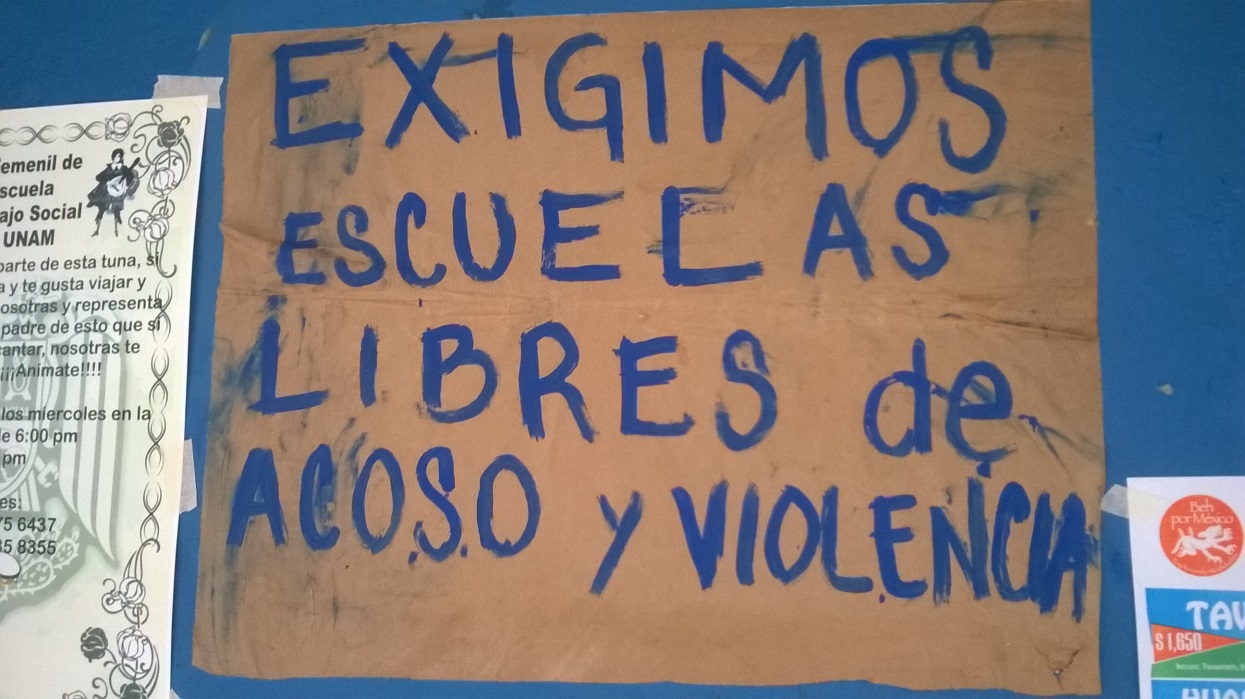 EXIGIMOS
ESCUELAS
LIBRES de
ACOSO y VIOLENCIA
de
ajo Social
UNAM
parte de esta tuna, si
a y te gusta viajar y
y representa
padre de esto que si
nosotras te
¡¡¡Anímate!!!!
los miercoles en la
6:00 pm
pm
6437
8355
Beh
por México
$1,650